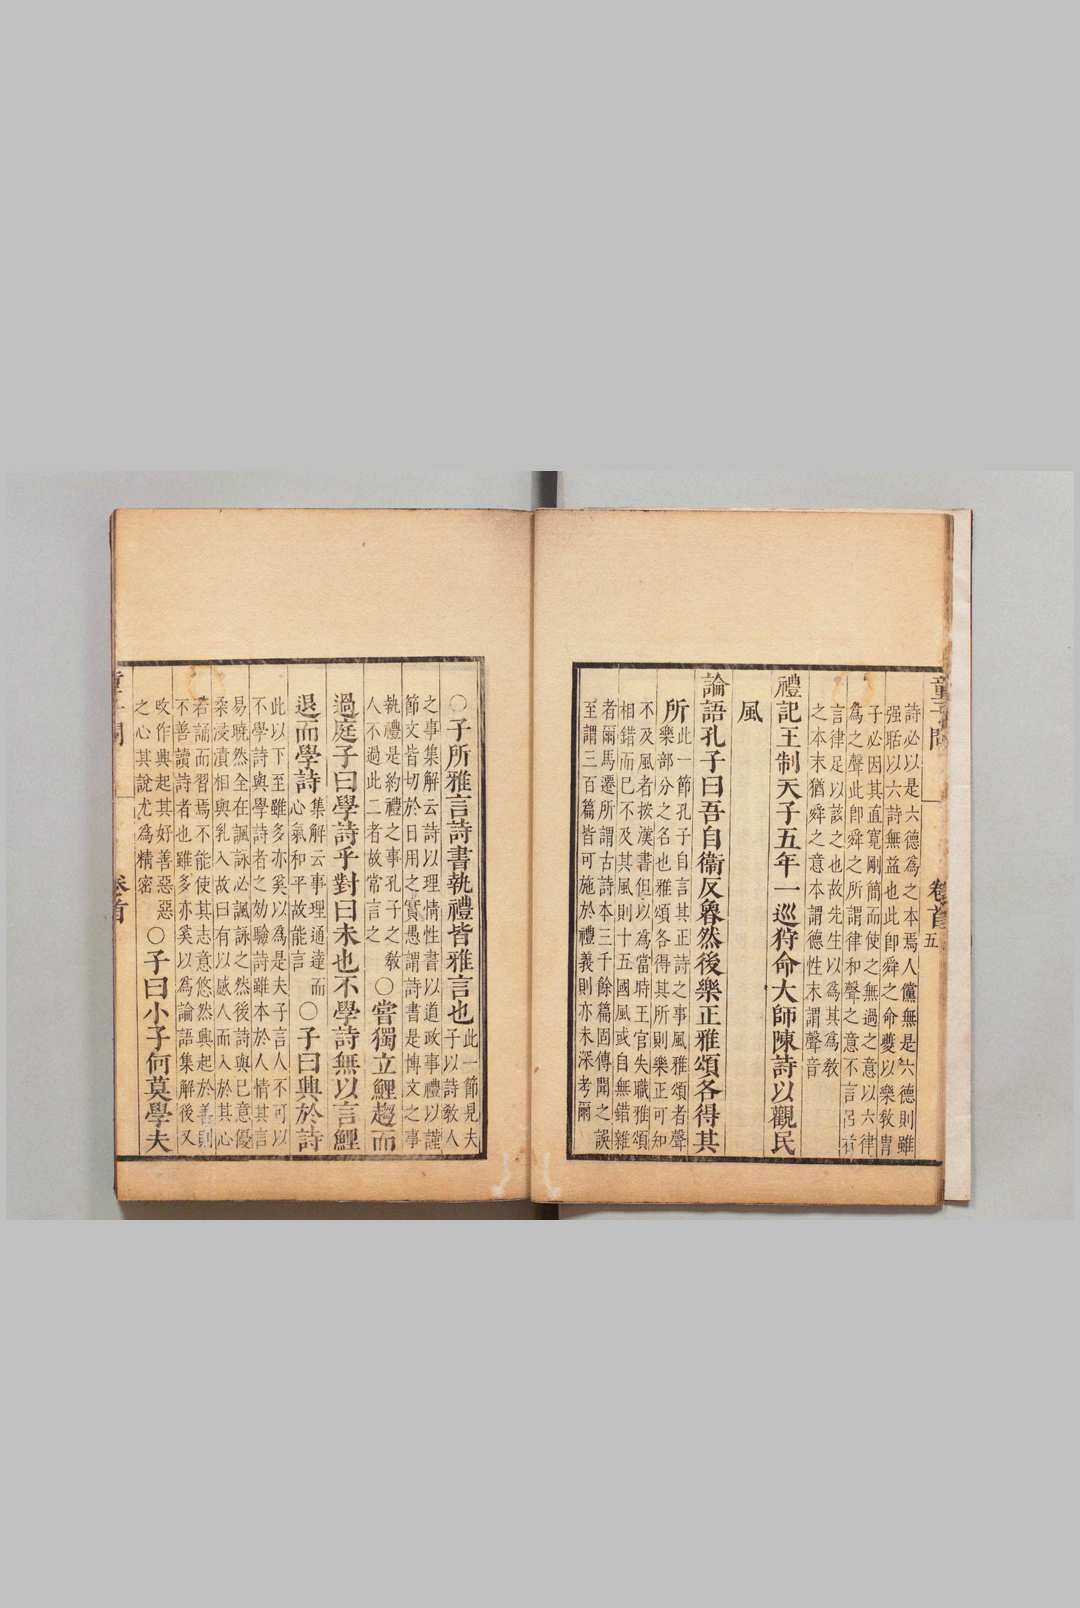 童子問
卷首
五
詩必以是六德爲之本焉人儻無是六德則雖
强聒以六詩無益也此即舜之命夔以樂敎胄
子必因其直寬剛簡而使之無過之意以六律
爲之聲此卽舜之所謂律和聲之意不言呂者
言律足以該之也故先生以爲其爲敎
之本末猶舜之意本謂德性末謂聲音
禮記王制天子五年一巡狩命大師陳詩以觀民
風
論語孔子曰吾自衞反魯然後樂正雅頌各得其
所
此一節孔子自言其正詩之事風雅頌者聲
樂部分之名也雅頌各得其所則樂正可知
不及風者按漢書但以爲當時王官失職雅頌
相錯而已不及其風則十五國風或自無錯雜
者爾馬遷所謂古詩本三千餘篇固傳聞之誤
至謂三百篇皆可施於禮義則亦未深考爾
○子所雅言詩書執禮皆雅言也
此一節見夫
子以詩敎人
之事集解云詩以理情性書以道政事禮以謹
節文皆切於日用之實愚謂詩書是博文之事
執禮是約禮之事孔子之敎
人不過此二者故常言之
○嘗獨立鯉趨而
過庭子曰學詩乎對曰未也不學詩無以言鯉
退而學詩
集解云事理通達而
心氣和平故能言
○子曰興於詩
此以下至雖多亦奚以爲是夫子言人不可以
不學詩與學詩者之効驗詩雖本於人情其言
易曉然全在諷詠必諷詠之然後詩與已意優
柔浸漬相與乳入故曰有以感人而入於其心
若誦而習焉不能使其志意悠然興起於善則
不善讀詩者也雖多亦奚以爲論語集解後又
改作興起其好善惡惡
之心其說尤爲精密
○子曰小子何莫學夫
童子問
卷首